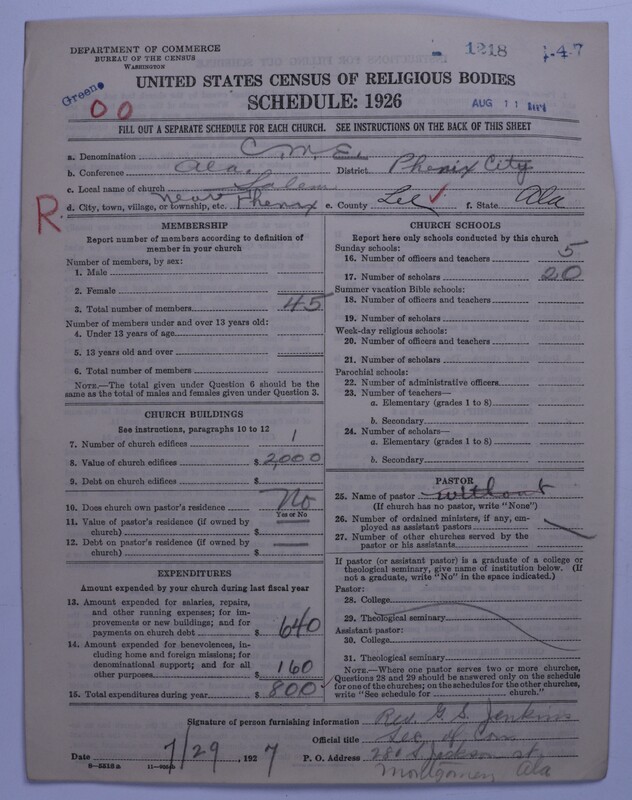 DEPARTMENT OF COMMERCE
BUREAU OF THE CENSUS
WASHINGTON
- 1218 1-47
Greene
00
UNITED STATES CENSUS OF RELIGIOUS BODIES
SCHEDULE: 1926
AUG 11
FILL OUT A SEPARATE SCHEDULE FOR EACH CHURCH. SEE INSTRUCTIONS ON THE BACK OF THIS SHEET
a. Denomination C. M. E.
b. Conference Ala. District Phenix City
c. Local name of church Salem
R.
d. City, town, village, or township, etc. near Phenix e. County Lee ✓ f. State Ala
MEMBERSHIP
Report number of members according to definition of
member in your church
Number of members, by sex:
1. Male
2. Female
3. Total number of members 45
Number of members under and over 13 years old:
4. Under 13 years of age
5. 13 years old and over
6. Total number of members
NOTE.—The total given under Question 6 should be the
same as the total of males and females given under Question 3.
CHURCH BUILDINGS
See instructions, paragraphs 10 to 12
7. Number of church edifices 1
8. Value of church edifices $ 2,000
9. Debt on church edifices $
10. Does church own pastor's residence No
Yes or No
11. Value of pastor's residence (if owned by
church) $
12. Debt on pastor's residence (if owned by
church) $
EXPENDITURES
Amount expended by your church during last fiscal year
13. Amount expended for salaries, repairs,
and other running expenses; for im-
provements or new buildings; and for
payments on church debt $ 640
14. Amount expended for benevolences, in-
cluding home and foreign missions; for
denominational support; and for all
other purposes 160
15. Total expenditures during year $ 800 ✓
CHURCH SCHOOLS
Report here only schools conducted by this church
Sunday schools:
16. Number of officers and teachers 5
17. Number of scholars 20
Summer vacation Bible schools:
18. Number of officers and teachers
19. Number of scholars
Week-day religious schools:
20. Number of officers and teachers
21. Number of scholars
Parochial schools:
22. Number of administrative officers
23. Number of teachers—
a. Elementary (grades 1 to 8)
b. Secondary
24. Number of scholars—
a. Elementary (grades 1 to 8)
b. Secondary
PASTOR
25. Name of pastor without
(If church has no pastor, write "None")
26. Number of ordained ministers, if any, em-
ployed as assistant pastors
27. Number of other churches served by the
pastor or his assistants
If pastor (or assistant pastor) is a graduate of a college or
theological seminary, give name of institution below. (If
not a graduate, write "No" in the space indicated.)
Pastor:
28. College
29. Theological seminary
Assistant pastor:
30. College
31. Theological seminary
NOTE.—Where one pastor serves two or more churches,
Questions 28 and 29 should be answered only on the schedule
for one of the churches; on the schedules for the other churches,
write "See schedule for church."
Signature of person furnishing information Rev. G. S. Jenkins
Official title Sec. of Con
Date 7/29, 1927 P. O. Address 280 S. Jackson st
Montgomery Ala